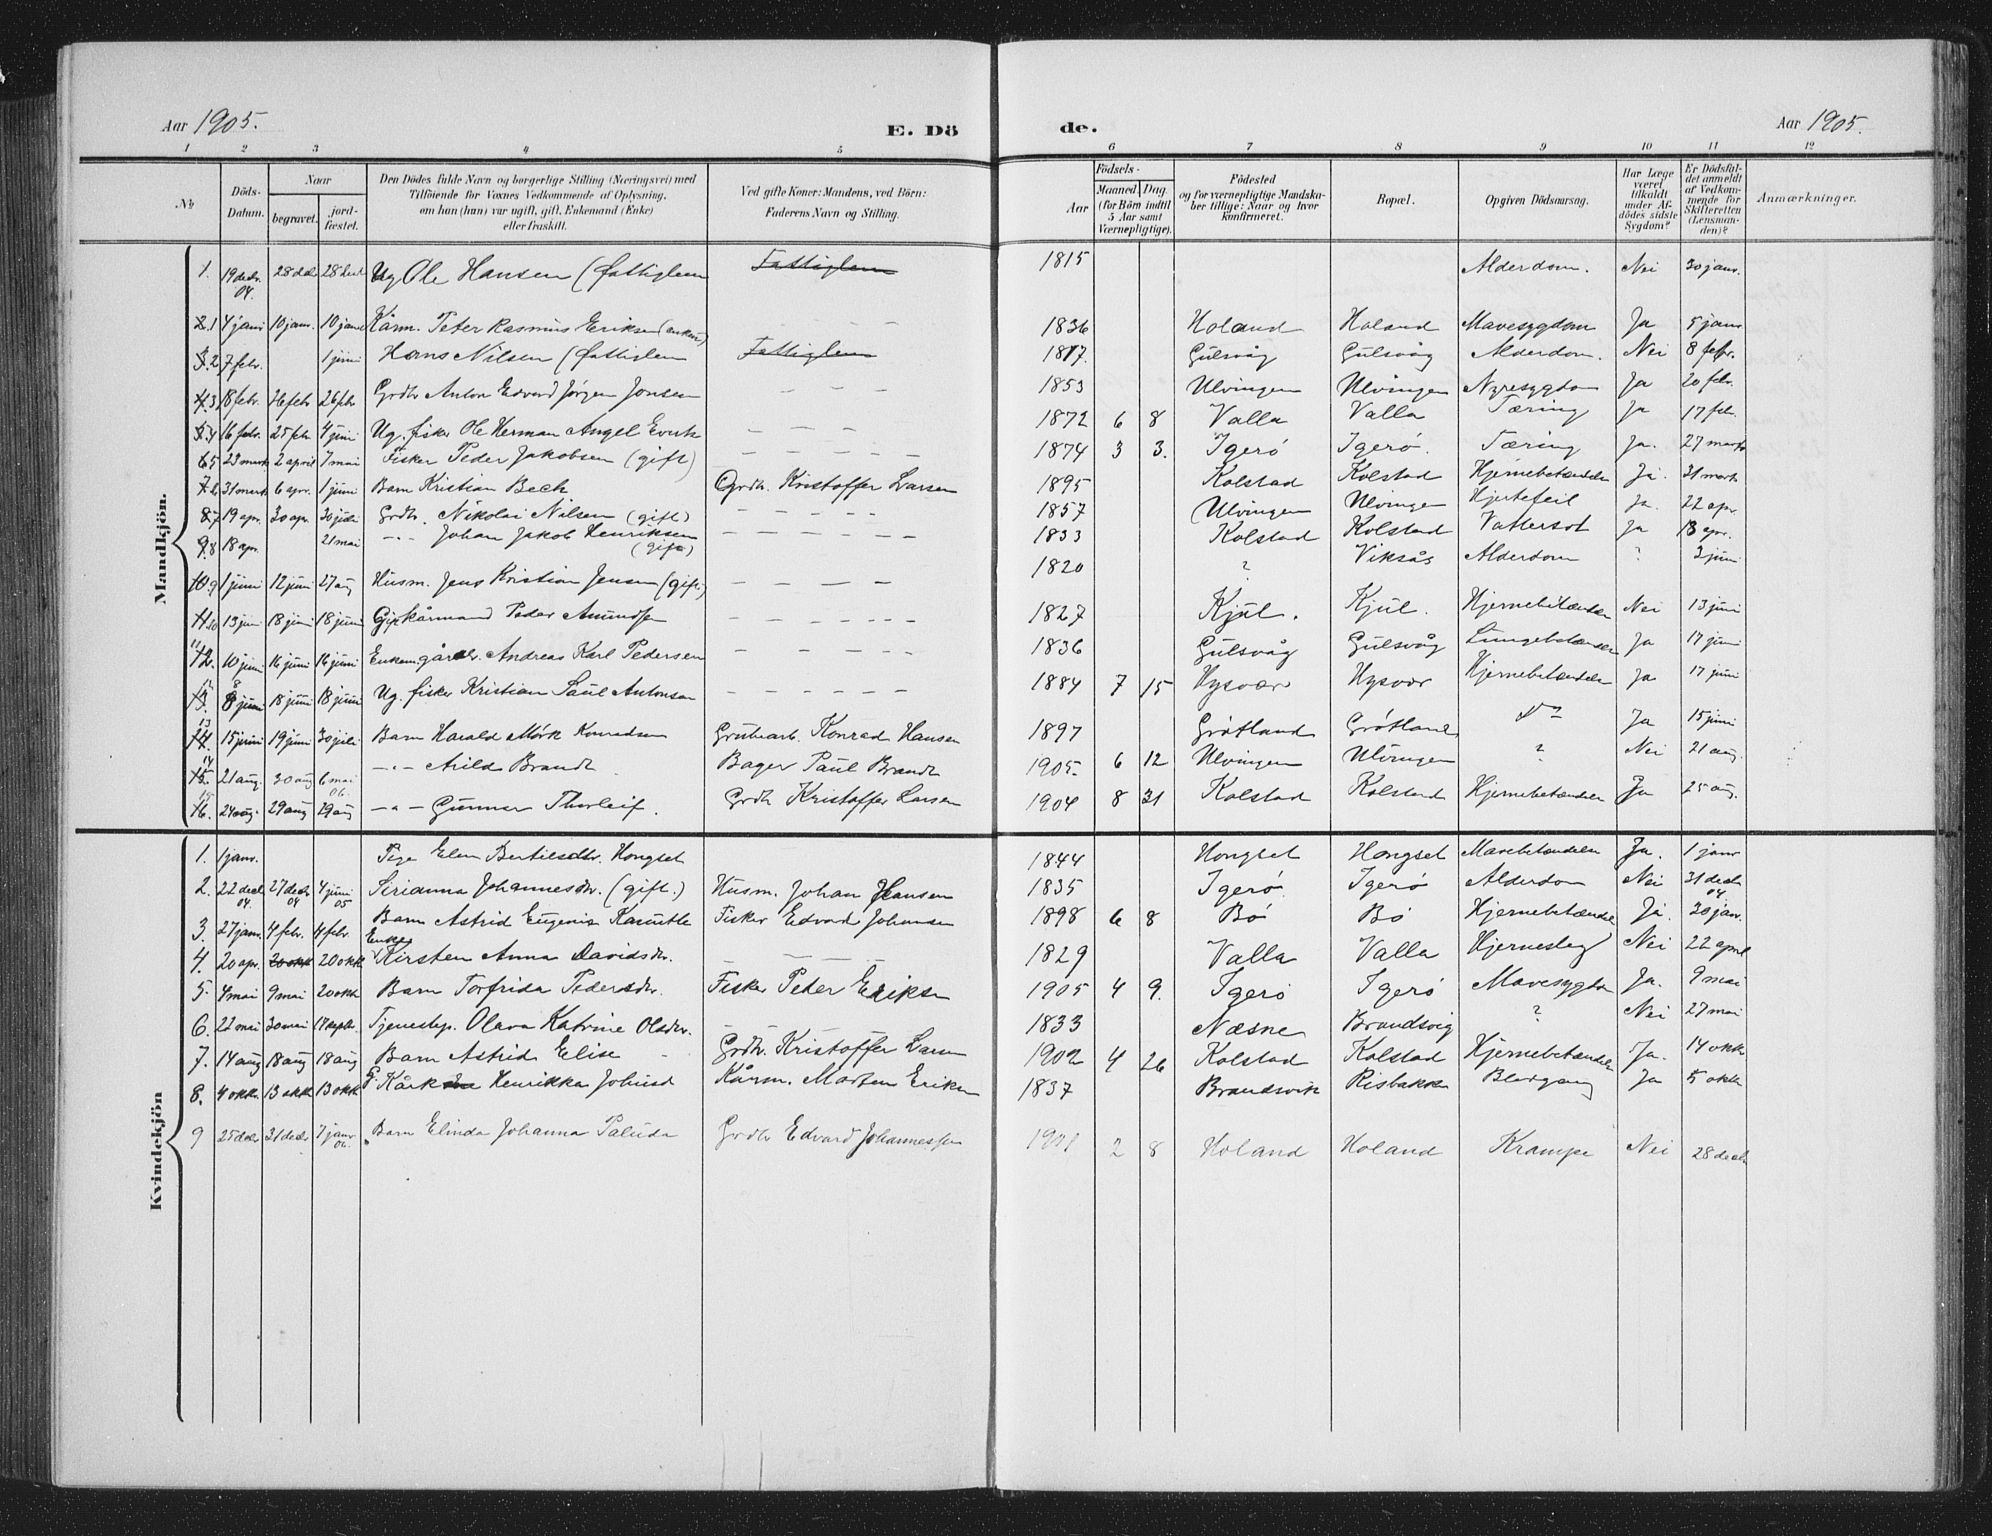 Aar 1905.
E. Dö
de.
Aar 1905.
1 2 3 4 5 6 7 8 9 10 11 12
№
Döds-Datum.
Naar
begravet.
jord-fæstet.
Den Dödes fulde Navn og borgerlige Stilling (Næringsvei) med Tilföiende for Voxnes Vedkommende af Oplysning, om han (hun) var ugift, gift, Enkemand (Enke) eller fraskilt.
Ved gifte Koner: Mandens, ved Börn: Faderens Navn og Stilling.
Födsels-
Aar
Maaned Dag
(for Börn indtil 5 Aar samt Værnepligtige).
Födested og for værnepligtige Mandskaber tillige: Naar og hvor konfirmeret.
Bopæl.
Opgiven Dödsaarsag.
Har Læge været tilkaldt under Afdödes sidste Sygdom?
Er Dödsfaldet anmeldt af Vedkommende for Skifteretten (Lensmanden)?
Anmærkninger.
Mandkjön.
1. 19 decbr. 04. 28 dec 28 dec Ug. Ole Hansen (fattiglem Fattiglem 1815 Alderdom. Nei 30 janr.
2.1 4 janr 10 janr. 10 janr Kårm. Peter Rasmus Eriksen (enkem) 1836 Holand Holand Mavesygdom Ja 5 janr
3.2 7 febr. 1 juni Hans Nilsen (fattiglem Fattiglem 1817. Gulsvåg Gulsvåg Alderdom. Nei 8 febr.
4.3 18 febr. 26 febr 26 febr Grdbr. Anton Edvard Jørgen Jonsen — — — 1853 Ulvingen Ulvingen Nyresygdom Ja 20 febr.
5.4 16 febr. 25 febr. 4 juni Ug. fisker Ole Herman Angel — — — 1872 6 8 Valla Valla Tæring Ja 17 febr.
6.5 23 marts 2 april 7 mai Fisker Peder Jakobsen (gift) — — — 1874 3 3. Igerø Igerø. Tæring Ja. 27 marts
7.6 31 marts 6 apr. 1 juni Barn Kristian Bech Grdbr. Kristoffer Larsen 1895 Kolstad Kolstad Hjernebetændelse Ja. 31 marts
8.7 19 apr. 30 apr. 30 juli Grdbr. Nikolai Nilsen (gift) — — — 1857 Ulvingen Ulvingen Hjertefeil Ja. 22 apr.
9.8 18 apr. 21 mai —"— Johan Jakob Henriksen (gift) — — — 1833 Kolstad Kolstad Vattersot Ja 18 apr.
10.9 1 juni 12 juni 27 aug Husm. Jens Kristian Jensen (gift.) — — — 1820 ? Viksås Alderdom ? 3 juni
11.10 13 juni 18 juni 18 juni Gift kårmand Peder Amundsen — — — 1827 Kjul. Kjul. Hjernebetændelse Nei 13 juni
12. 11 10 juni 16 juni 16 juni Enkem. gårdbr. Andreas Karl Pedersen — — — 1836 Gulsvåg Gulsvåg Lungebetændelse Ja 17 juni
13. 12 8 juni 18 juni 18 juni Ug. fisker Kristian Saul Antonsen — — — 1884 7 15 Hysvær Hysvær Hjernebetændelse Ja 17 juni
14. 13 15 juni 19 juni 30 juli Barn Harald Mørk Konradsen Grubearb. Konrad Hansen 1897 Grøtland Grøtland do Ja 15 juni
15. 14 21 aug. 30 aug 6 mai 06. —"— Arild Brandt Bager Paul Brandt 1905. 6 12 Ulvingen Ulvingen ? Nei 21 aug.
16. 15 24 aug. 29 aug 29 aug —"— Gunnar Thorleif. Grdbr Kristoffer Larsen 1904 8 31 Kolstad Kolstad Hjernebetændelse Ja 25 aug.
Kvindekjön
1. 1 janr. Pige Elen Bertilsdtr. Hongset 1844 Hongset Hongset Mavebetændelse Ja. 1 janr
2. 22 dec 04. 27 dec 04 4 juni 05 Sirianna Johannesdtr. (gift.) Husm. Johan Hansen 1835 Igerø Igerø Alderdom Nei 31 decbr 04
3. 27 janr. 4 febr. 4 febr Barn Astrid Eugenie Fisker Edvard Johansen 1898 6 8 Bø Bø Hjernebetændelse Ja. 30 janr.
4. 20 apr. 20 okt 20 okt Enke Kirsten Anna Davidsdtr. — — — 1829 Valla Valla Hjerneslag Nei 22 april
5 4 mai 9 mai 20 okt Barn Torfrida Pedersdtr. Fisker Peter Eriksen 1905 4 9. Igerø Igerø Mavesygdom Ja. 9 mai
6. 22 mai 30 mai 17 septbr. Tjenestep. Olava Katrine Olsdtr. 1833 Næsne Brandsvig ? Nei 27 mai
7. 14 aug 18 aug 18 aug Barn Astrid Elise Grdbr. Kristoffer Larsen 1902 4 26 Kolstad Kolstad Hjernebetændelse Ja. 14 okt
8. 4 okt. 13 okt 13 okt G. Kårk Henrikka Johansd Kårm. Morten Eriksen 1837 Brandsvik Risbakk Blodgang Ja 5 okt
9 25 decbr 31 decbr 7 janr 06. Barn Elinda Johanna Paluda Grdbr Edvard Johannessen 1901 2 8 Holand Holand Krampe Nei 28 decbr